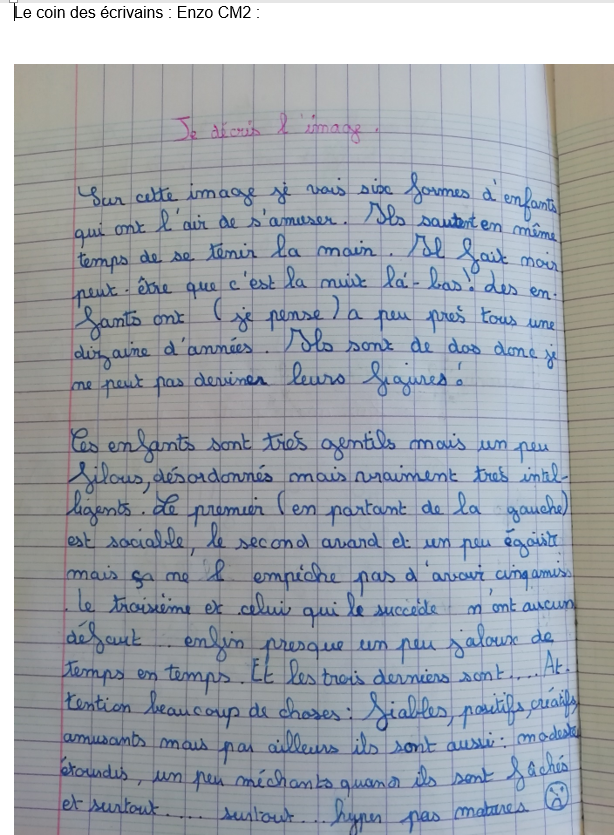 Le coin des écrivains : Enzo CM2 :
Je décris l'image.
Sur cette image je vois six formes d'enfants
qui ont l'air de s'amuser. Ils sautent en même
temps de se tenir la main. Il fait noir
peut-être que c'est la nuit là-bas! des en-
fants ont (je pense) a peu près tous une
dizaine d'années. Ils sont de dos donc je
ne peut pas deviner leurs figures!
Ces enfants sont très gentils mais un peu
filous, désordonnés mais vraiment très intel-
ligents. Le premier (en partant de la gauche)
est sociable, le second avard et un peu égoiste
mais ça ne l'empêche pas d'avoir cinq amis
. Le troisième et celui qui le succède n'ont aucun
défaut... enfin presque un peu jaloux de
temps en temps. Et les trois derniers sont.... At-
tention beaucoup de choses: fiables, positifs, créatifs,
amusants mais par ailleurs ils sont aussi: modeste
étourdis, un peu méchants quand ils sont fâchés
et surtout.... surtout... hyper pas matures